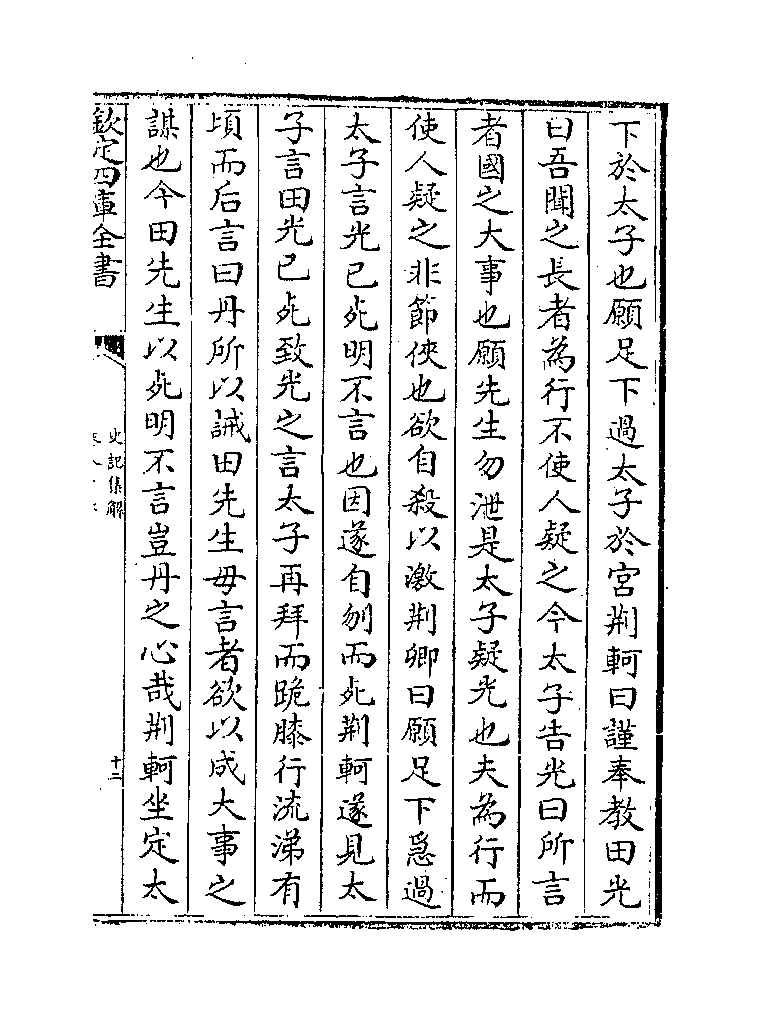 下於太子也願足下過太子於宮荆軻曰謹奉教田光
曰吾聞之長者為行不使人疑之今太子告光曰所言
者國之大事也願先生勿泄是太子疑光也夫為行而
使人疑之非節俠也欲自殺以激荆卿曰願足下急過
太子言光已死明不言也因遂自刎而死荆軻遂見太
子言田光已死致光之言太子再拜而跪膝行流涕有
頃而后言曰丹所以誡田先生毋言者欲以成大事之
謀也今田先生以死明不言豈丹之心哉荆軻坐定太
欽定四庫全書
史記集解
十二